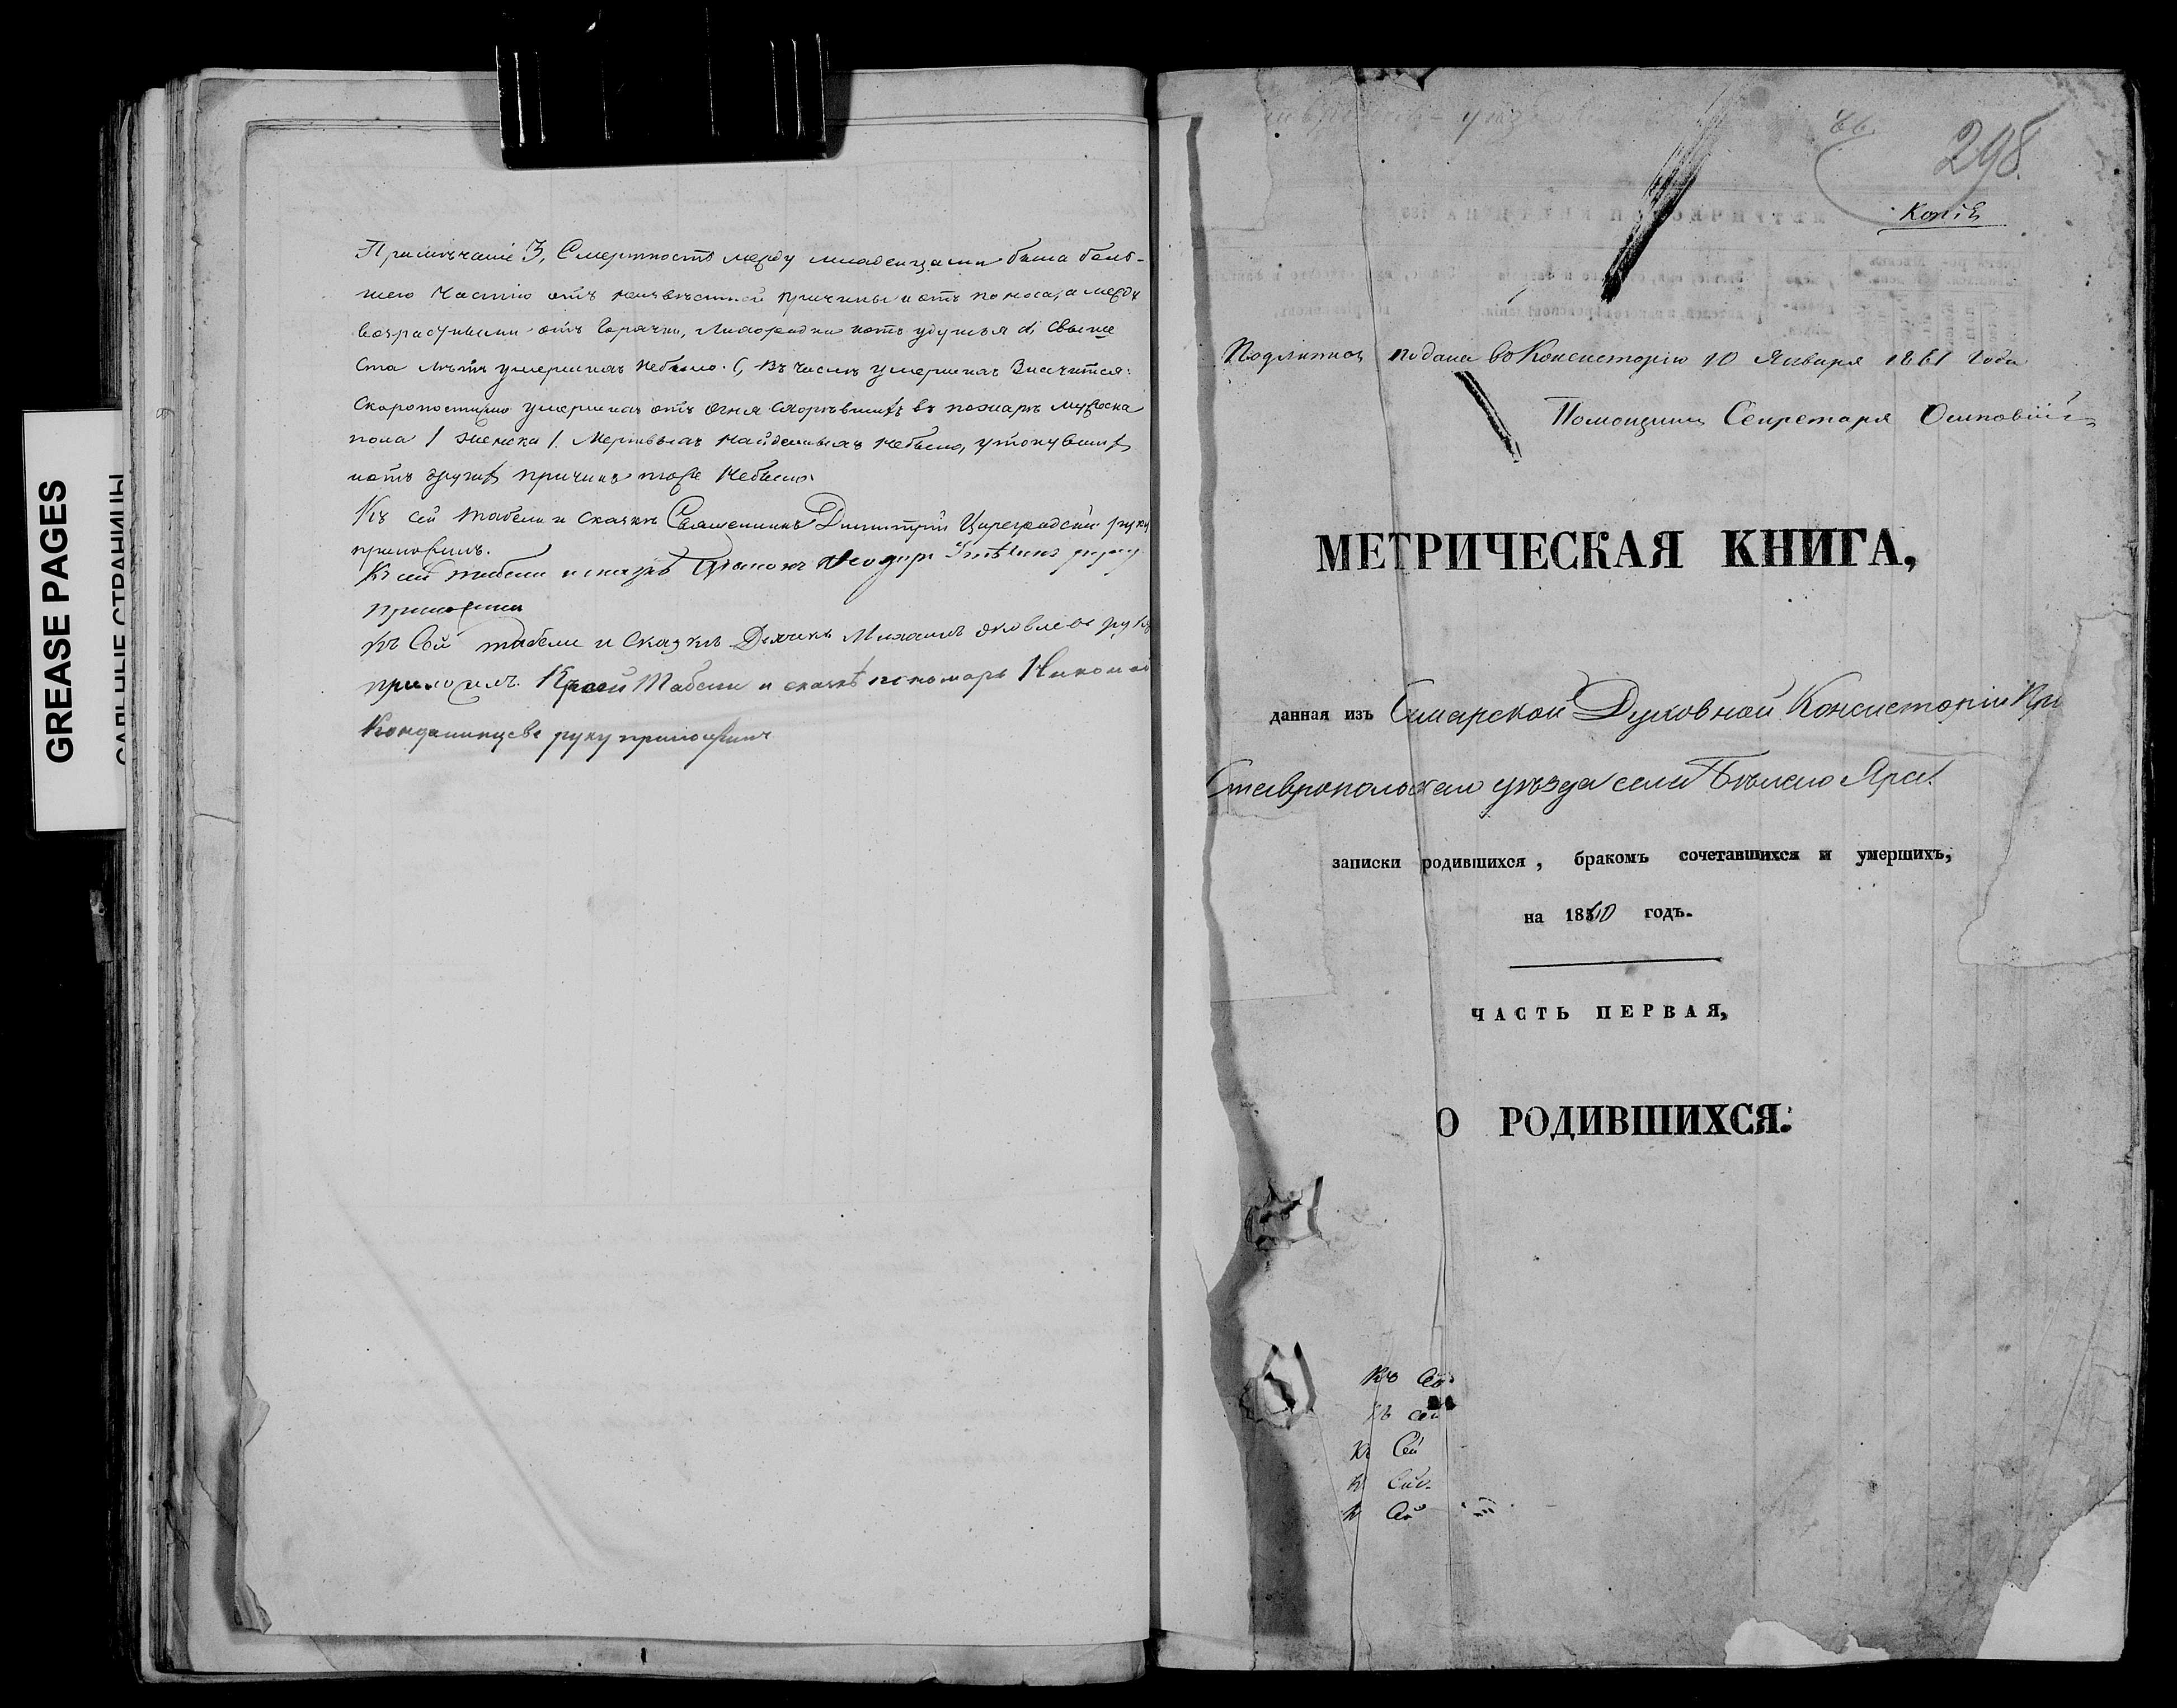 GREASE PAGES
САЛЬНЫЕ СТРАНИЦЫ
Примѣчаніе 3, Смертность между младенцами была боль-
шею частію отъ неизвѣстной причины и отъ поноса, а между
возрастными отъ Горячки, лихорадки и отъ удушья d, Свыше
Ста лѣтъ умершихъ небыло. С, Въ числѣ умершихъ Значится:
Скоропостижно умершихъ отъ огня сгорѣвшихъ въ пожарѣ мужеска
пола 1 женска 1. Мертвыхъ найденныхъ небыло, утонувшихъ
и отъ другихъ причинъ тоже небыло.
Къ сей табели и сказкѣ Священникъ Димитрій Цареградскій руку
приложилъ.
Къ сей табели и сказкѣ Діаконъ Ѳеодоръ руку
приложилъ
Къ Сей табели и Сказкѣ Дьячекъ Михаилъ Яковлевъ руку
приложилъ. Къ сей Табели и сказкѣ пономарь Николай
руку приложилъ
298.
Копія
Подлинная подана въ Консисторію 10 Января 1861 Года
Помощникъ Секретаря
МЕТРИЧЕСКАЯ КНИГА,
данная изъ Самарской Духовной Консисторіи При
Ставропольскаго уѣзда села Бѣлаго Яра.
записки родившихся, бракомъ сочетавшихся и умершихъ,
на 1860 годъ.
ЧАСТЬ ПЕРВАЯ,
О РОДИВШИХСЯ.
Къ Сей
Къ сей
Къ Сей
К Сей
К Сей